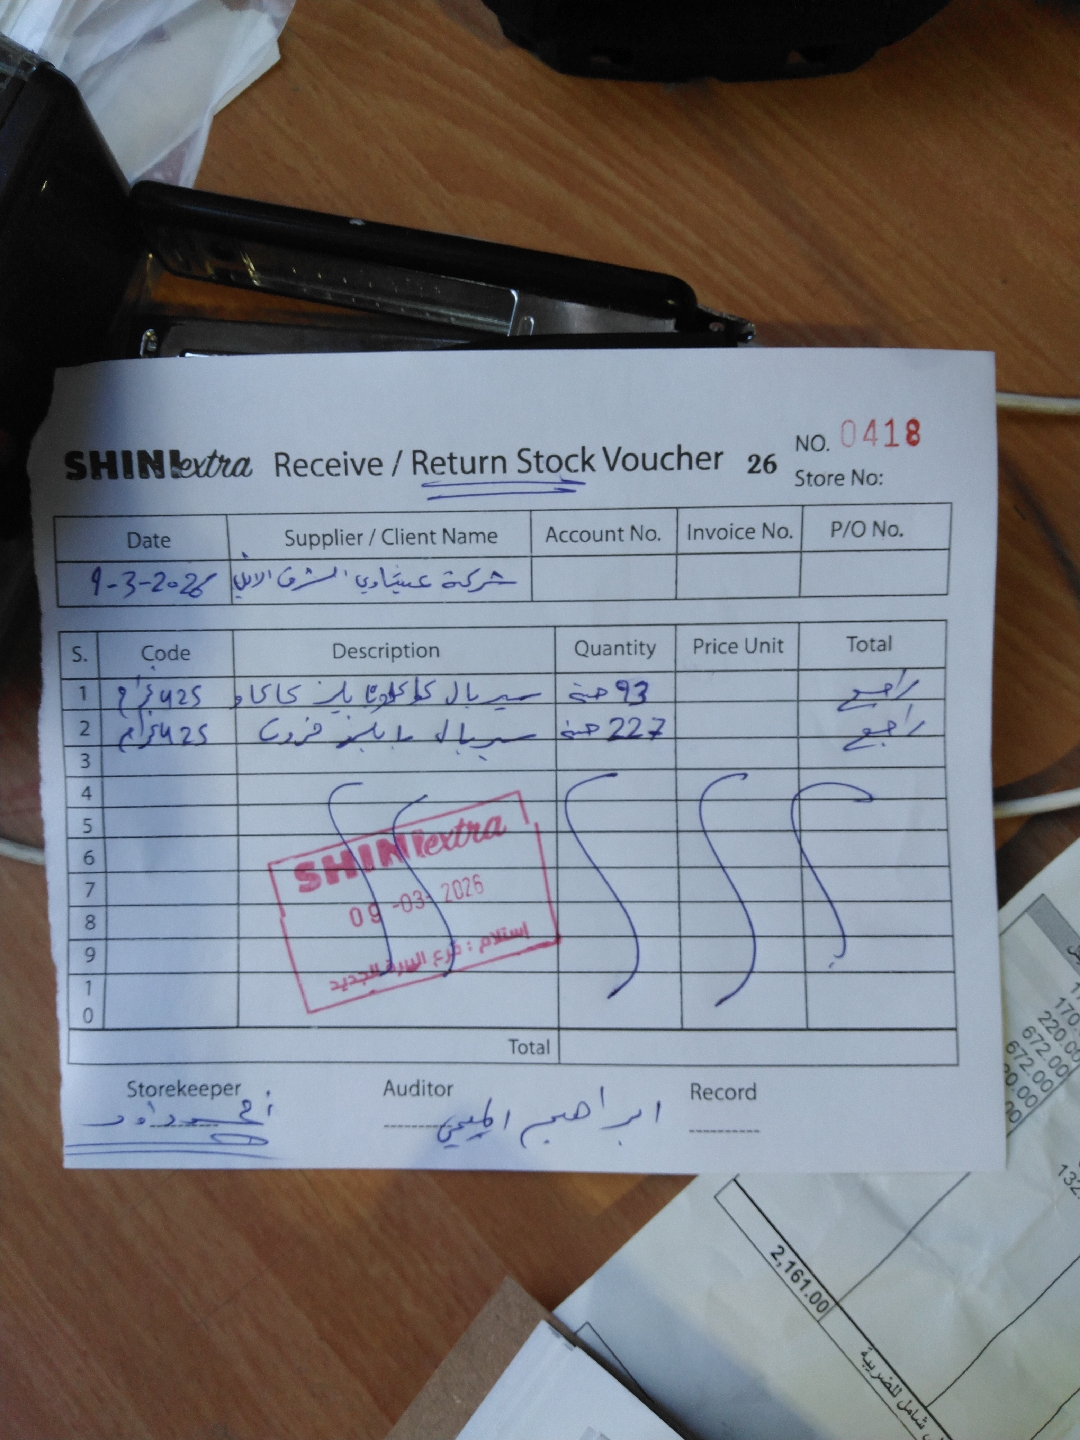 SHINIextra Receive / Return Stock Voucher 26
NO. 0418
Store No:
Date Supplier / Client Name Account No. Invoice No. P/O No.
9-3-2026 شركة الشرق
S. Code Description Quantity Price Unit Total
1 425 جرام سيربال كاكاو 93 حبة راجع
2 425 جرام سيربال فروت 227 حبة راجع
3
4
5
6
7
8
9
10
SHINIextra
09-03-2026
استلام : فرع الجديد
Total
Storekeeper Auditor Record
ابراهيم
170.
220.00
672.00
672.00
132.
2,161.00
شامل للضريبة